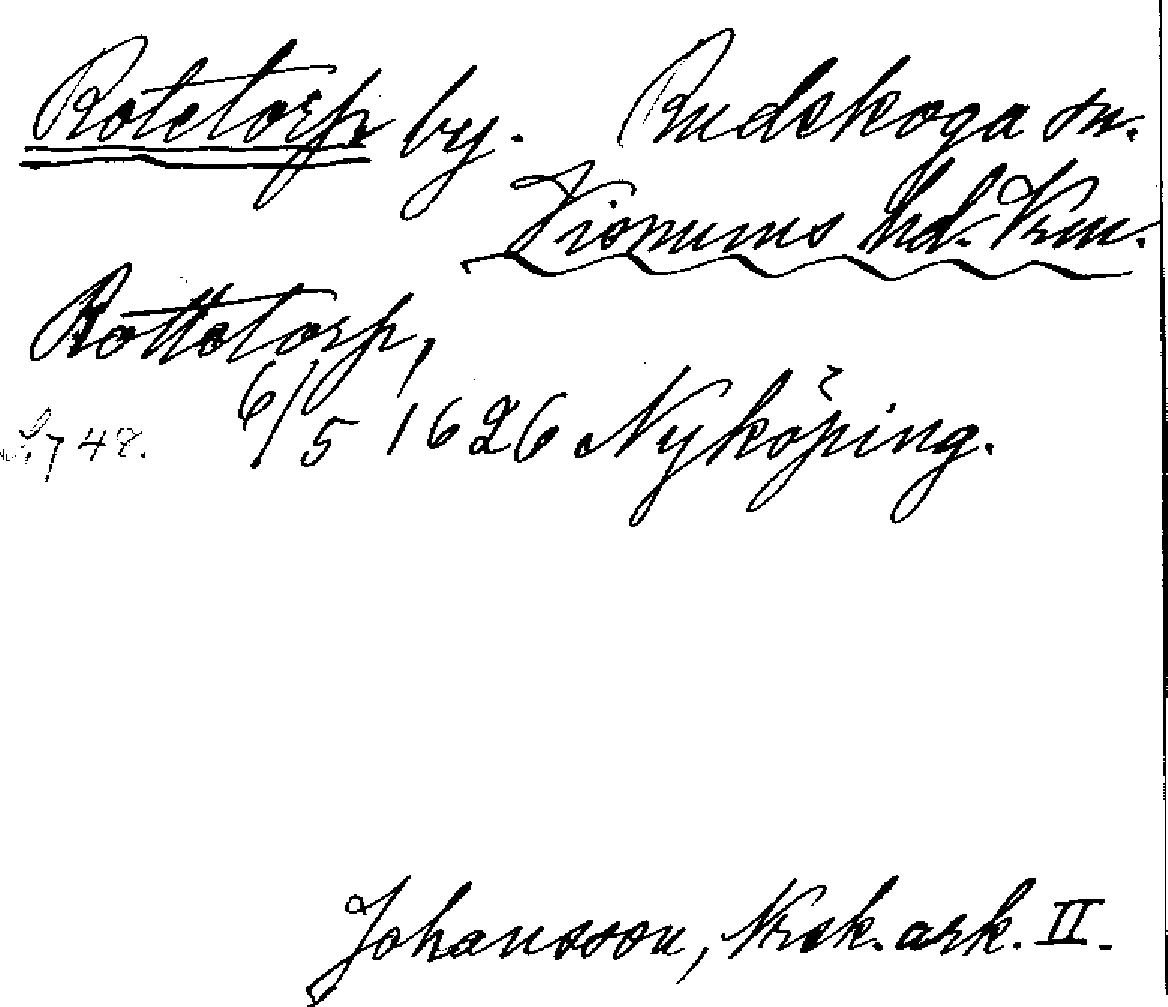 Rotetorp by. Rudskoga sn.
Visnums hd. Vrm.
Rottetorp,
6/5 1626 Nyköping.
Johansson, Krsk. ark. II.